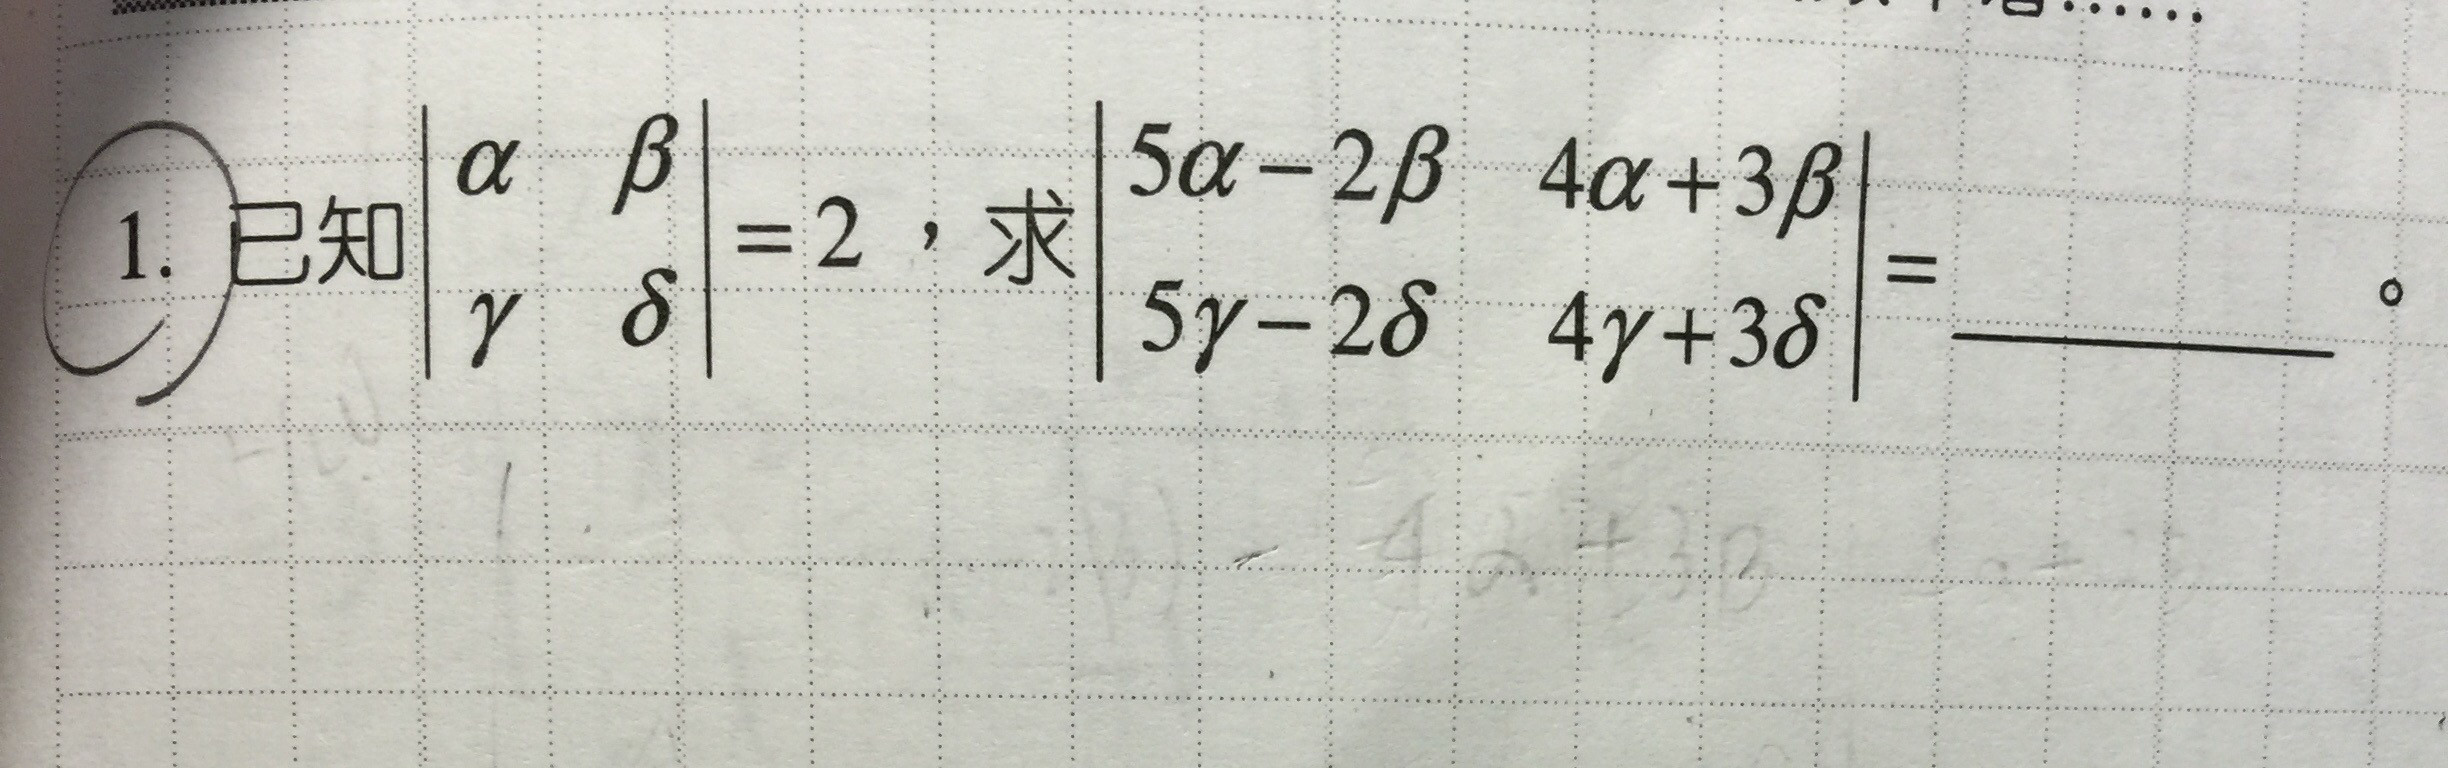 1. 已知|α β; γ δ|=2，求|5α−2β 4α+3β; 5γ−2δ 4γ+3δ|=______。
4α+3β